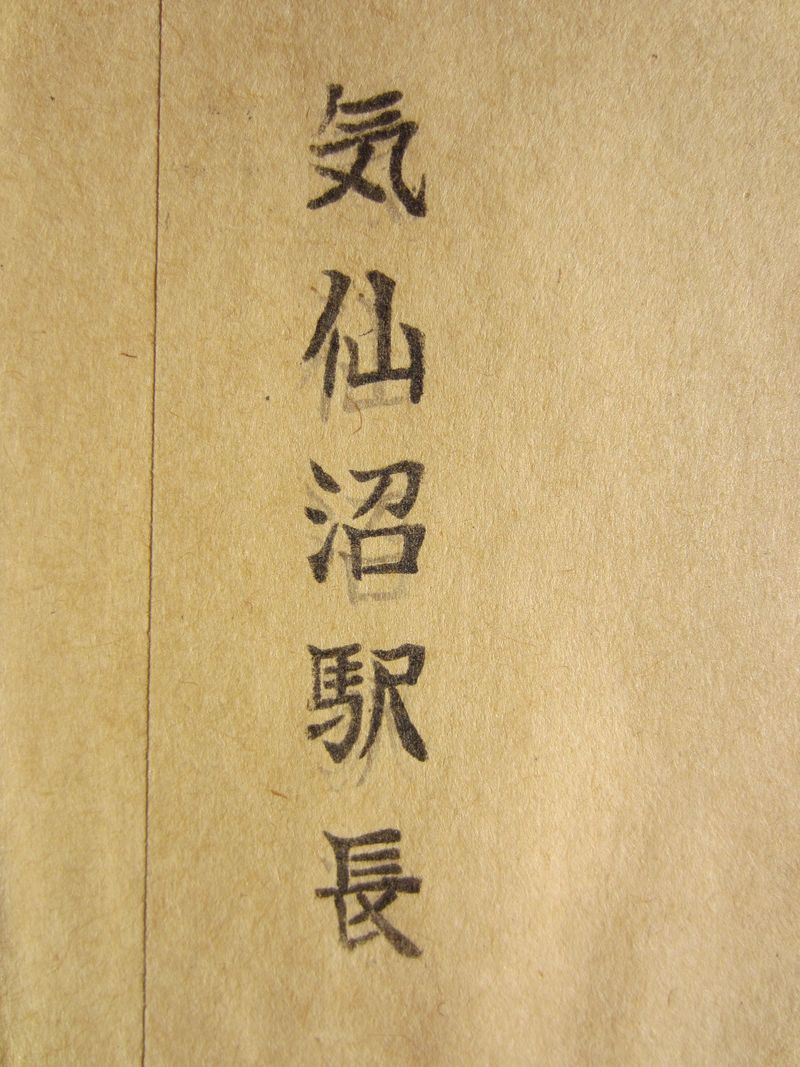 気仙沼駅長